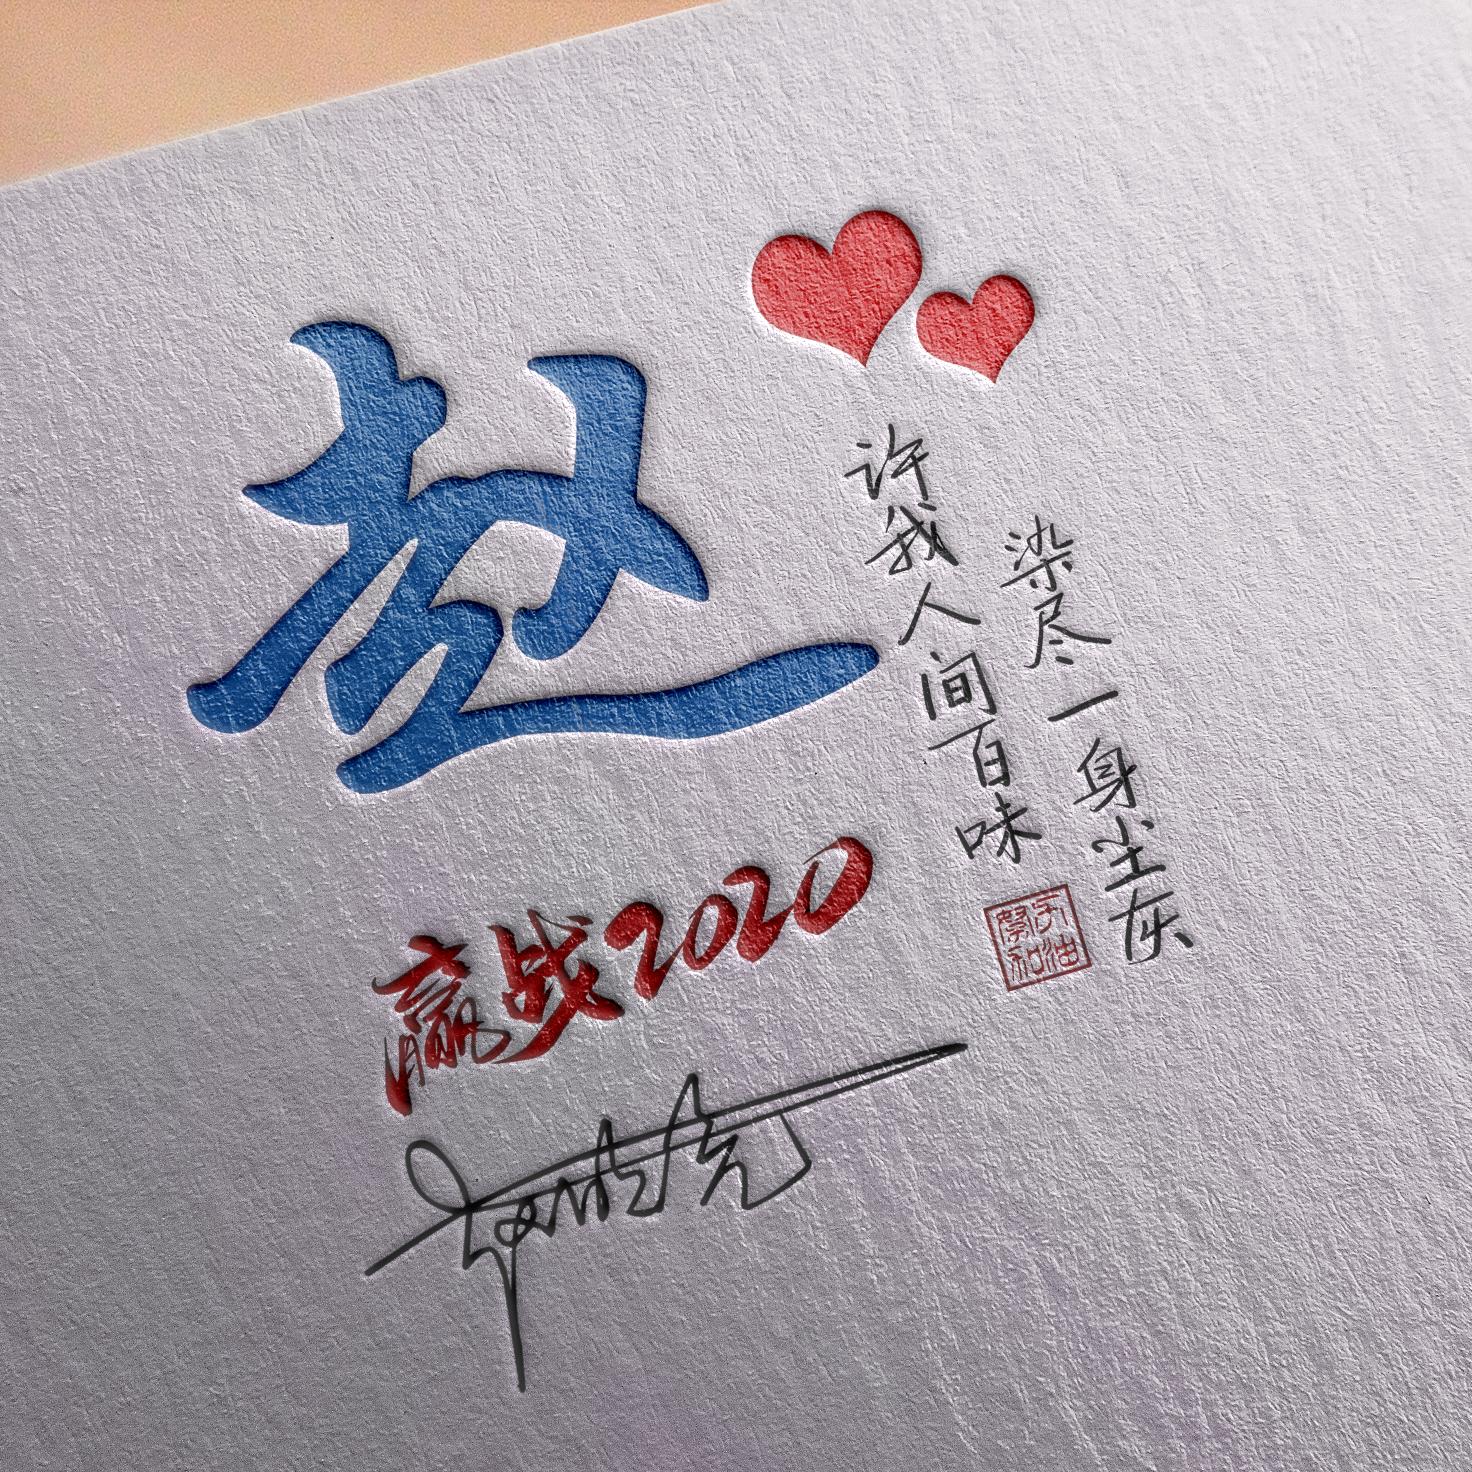 赵
许我人间百味
染尽一身尘灰
赢战2020